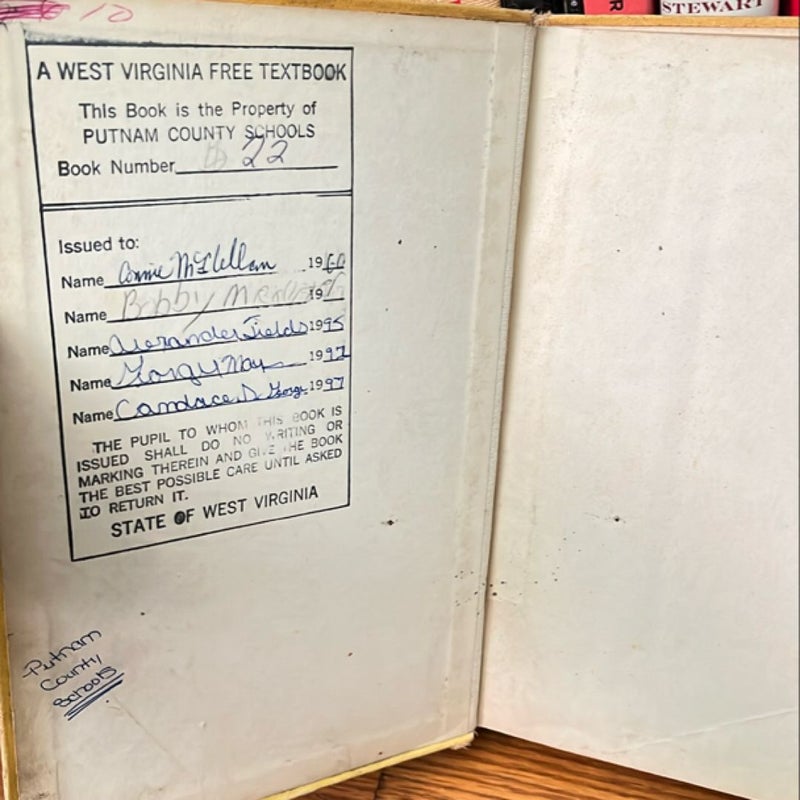 STEWART
10
A WEST VIRGINIA FREE TEXTBOOK
This Book is the Property of
PUTNAM COUNTY SCHOOLS
Book Number 22
Issued to:
Name Connie McClellan 1960
Name Bobby 19
Name Alexander Fields 1995
Name 1997
Name Candace D. George 1997
THE PUPIL TO WHOM THIS BOOK IS
ISSUED SHALL DO NO WRITING OR
MARKING THEREIN AND GIVE THE BOOK
THE BEST POSSIBLE CARE UNTIL ASKED
TO RETURN IT.
STATE OF WEST VIRGINIA
Putnam
County
Schools